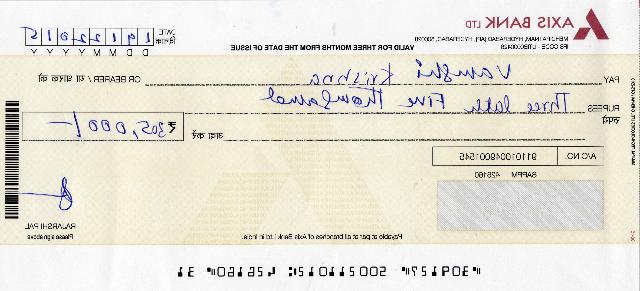 AXIS BANK LTD
MEHDIPATNAM, HYDERABAD [AP], HYDERABAD, 500001
IFS CODE - UTIB0000429
VALID FOR THREE MONTHS FROM THE DATE OF ISSUE
DATE दिनांक 19122015
D D M M Y Y Y Y
PAY Vamshi Krishna OR BEARER / या धारक को
RUPEES रुपये Three lakh Five Thousand
अदा करें ₹ 305,000/-
A/C NO. 911010049001545
SAPPM 426160
Payable at par at all branches of Axis Bank Ltd in India.
RAJARSHI PAL
Please sign above
309157 500211012 426160 31